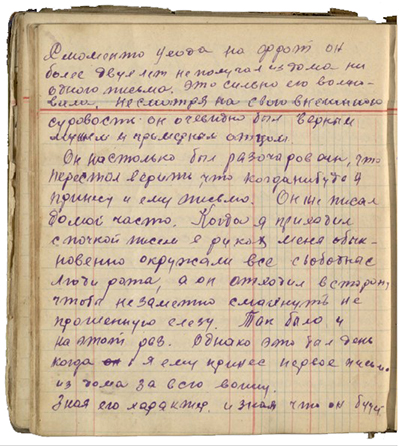 С момента ухода на фронт он
более двух лет не получал из дома ни
одного письма. Это сильно его волно-
вало, несмотря на свою внешнюю
суровость он очевидно был верным
мужем и примерном отцом.
Он настолько был разочарован, что
перестал верить что когданибудь я
принесу и ему письмо. Он же писал
домой часто. Когда я приходил
с пачкой писем в руках меня обык-
новенно окружали все свободнае
люди рота, а он отходил в сторону
чтобы незаметно смахнуть не
прошенную слезу. Так было и
на этот раз. Однако это был день
когда я ему принес первое письмо
из дома за всю войну.
Зная его характер и зная что он будет